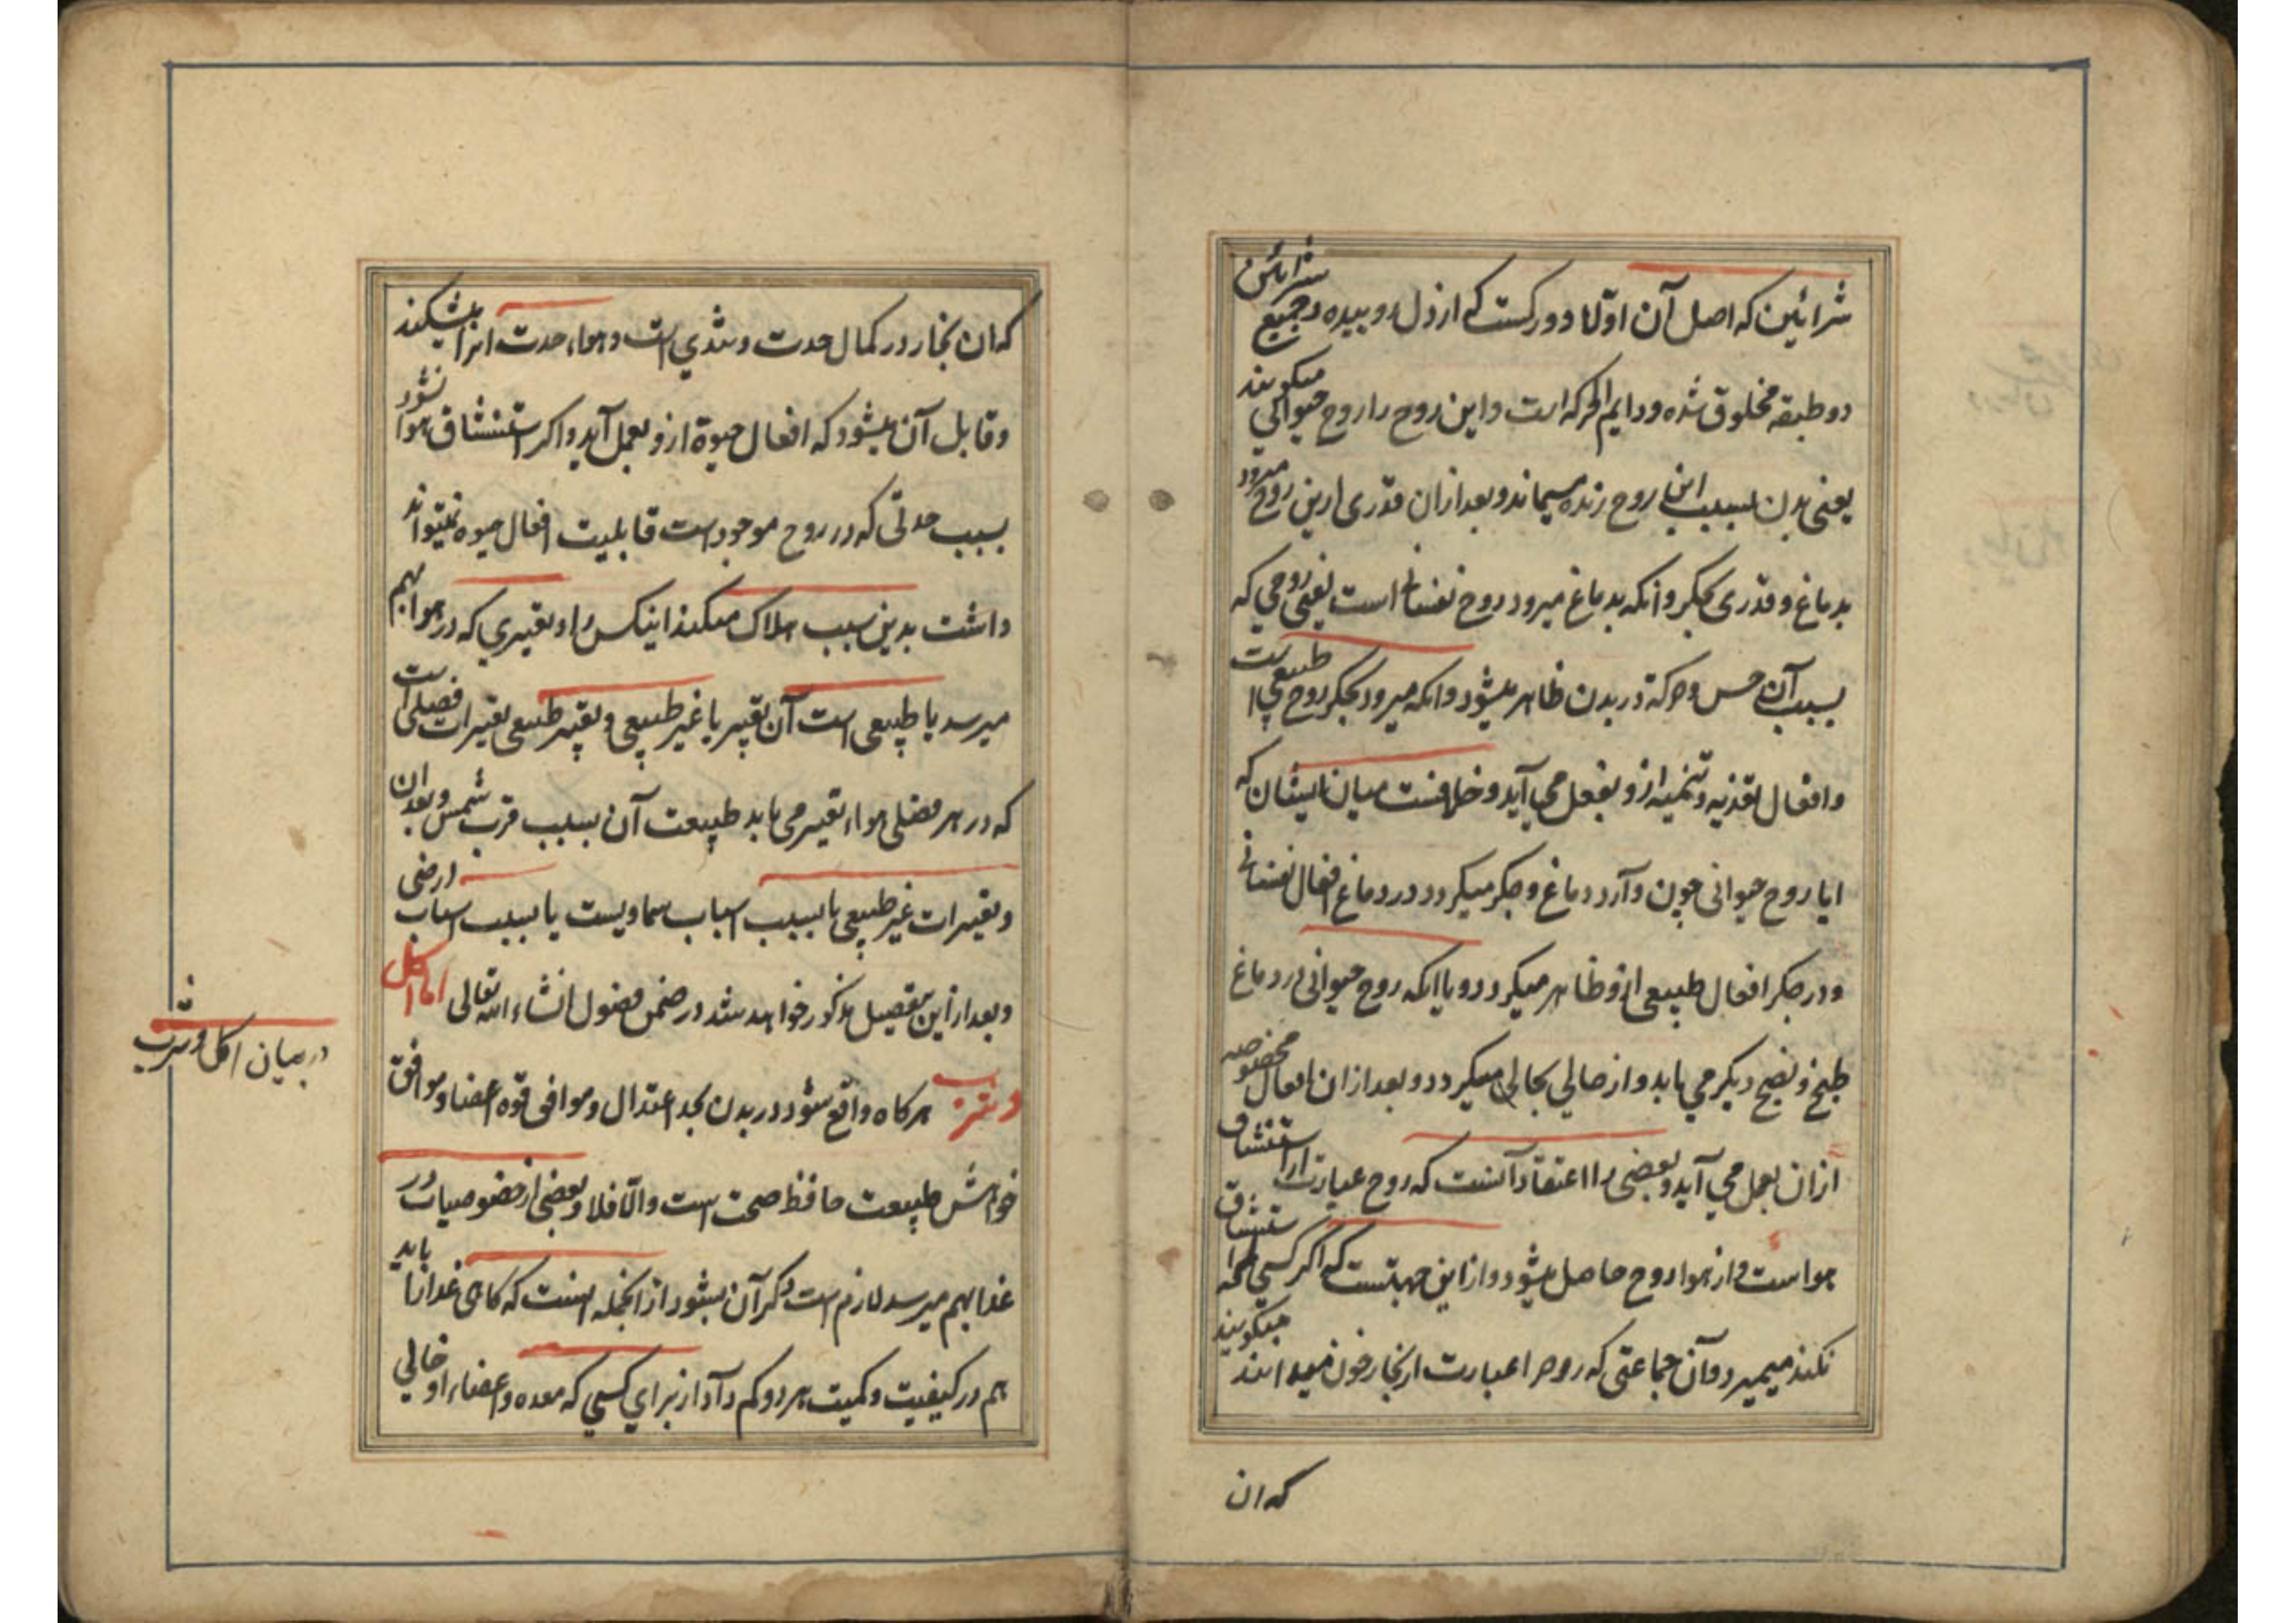 شرائین که اصل آن اوّلا دو رکست که از دل روییده و جمیع شرائین
دو طبقه مخلوق شده و دایم الحرکه است و این روح را روح حیوانی میکویند
یعنی بدن بسبب این روح زنده میماند و بعد از ان قدری ازین روح میرود
بدماغ و قدری بجکر و انکه بدماغ میرود روح نفسانی است یعنی روحی که
بسبب آن حس و حرکة در بدن ظاهر میشود و انکه میرود بجکر روح طبیعی است
و افعال تغذیه و تنمیه ازو بفعل می آید و خلافست میان ایشان که
ایا روح حیوانی چون وآرد دماغ و جکر میکردد در دماغ افعال نفسانی
و در جکر افعال طبیعی ازو ظاهر میکردد و یا انکه روح حیوانی در دماغ
طبخ و نضج دیکر می یابد و از حالی بحالی میکردد و بعد از ان افعال مخصوصه
ازان بعمل می آید و بعضی را اعتقاد آنست که روح عبارت از استنشاق
هوا است و از هوا روح حاصل میشود و از این جهتست که اکر کسی استنشاق
نکند میمیرد و آن جماعتی که روح را عبارت از بخار خون میدانند میکویند
که ان
که ان بخار در کمال حدت و تندی است و هواء حدت انرا میشکند
و قابل آن میشود که افعال حیوة ازو بعمل آید و اکر استنشاق هوا نشود
بسبب حدتی که در روح موجود است قابلیت افعال حیوه نمیتواند
داشت بدین سبب هلاک میکند اینکس را و تغییری که در هوا بهم
میرسد یا طبیعی است آن تغییر یا غیر طبیعی و تغییر طبیعی تغییرات فصلی است
که در هر فصلی هواء تغییر می یابد طبیعت آن بسبب قرب شمس و بعد ان
و تغییرات غیر طبیعی یا بسبب اسباب سماویست یا بسبب اسباب ارضی
و بعد از این بتفصیل مذکور خواهد شد در ضمن فصول انشاء الله تعالی اما اکل
و شرب هرکاه واقع شود در بدن بحد اعتدال و موافق قوه اعضا و موافق
خواهش طبیعت حافظ صحت است والّا فلا و بعضی از خصوصیات در
غذا بهم میرسد لازم است ذکر آن بشود از انجمله اینست که کاهی غذا را باید
هم در کیفیت و کمیت هر دو کم داد از برای کسی که معده و اعضاء او خالی
در بیان اکل و شرب